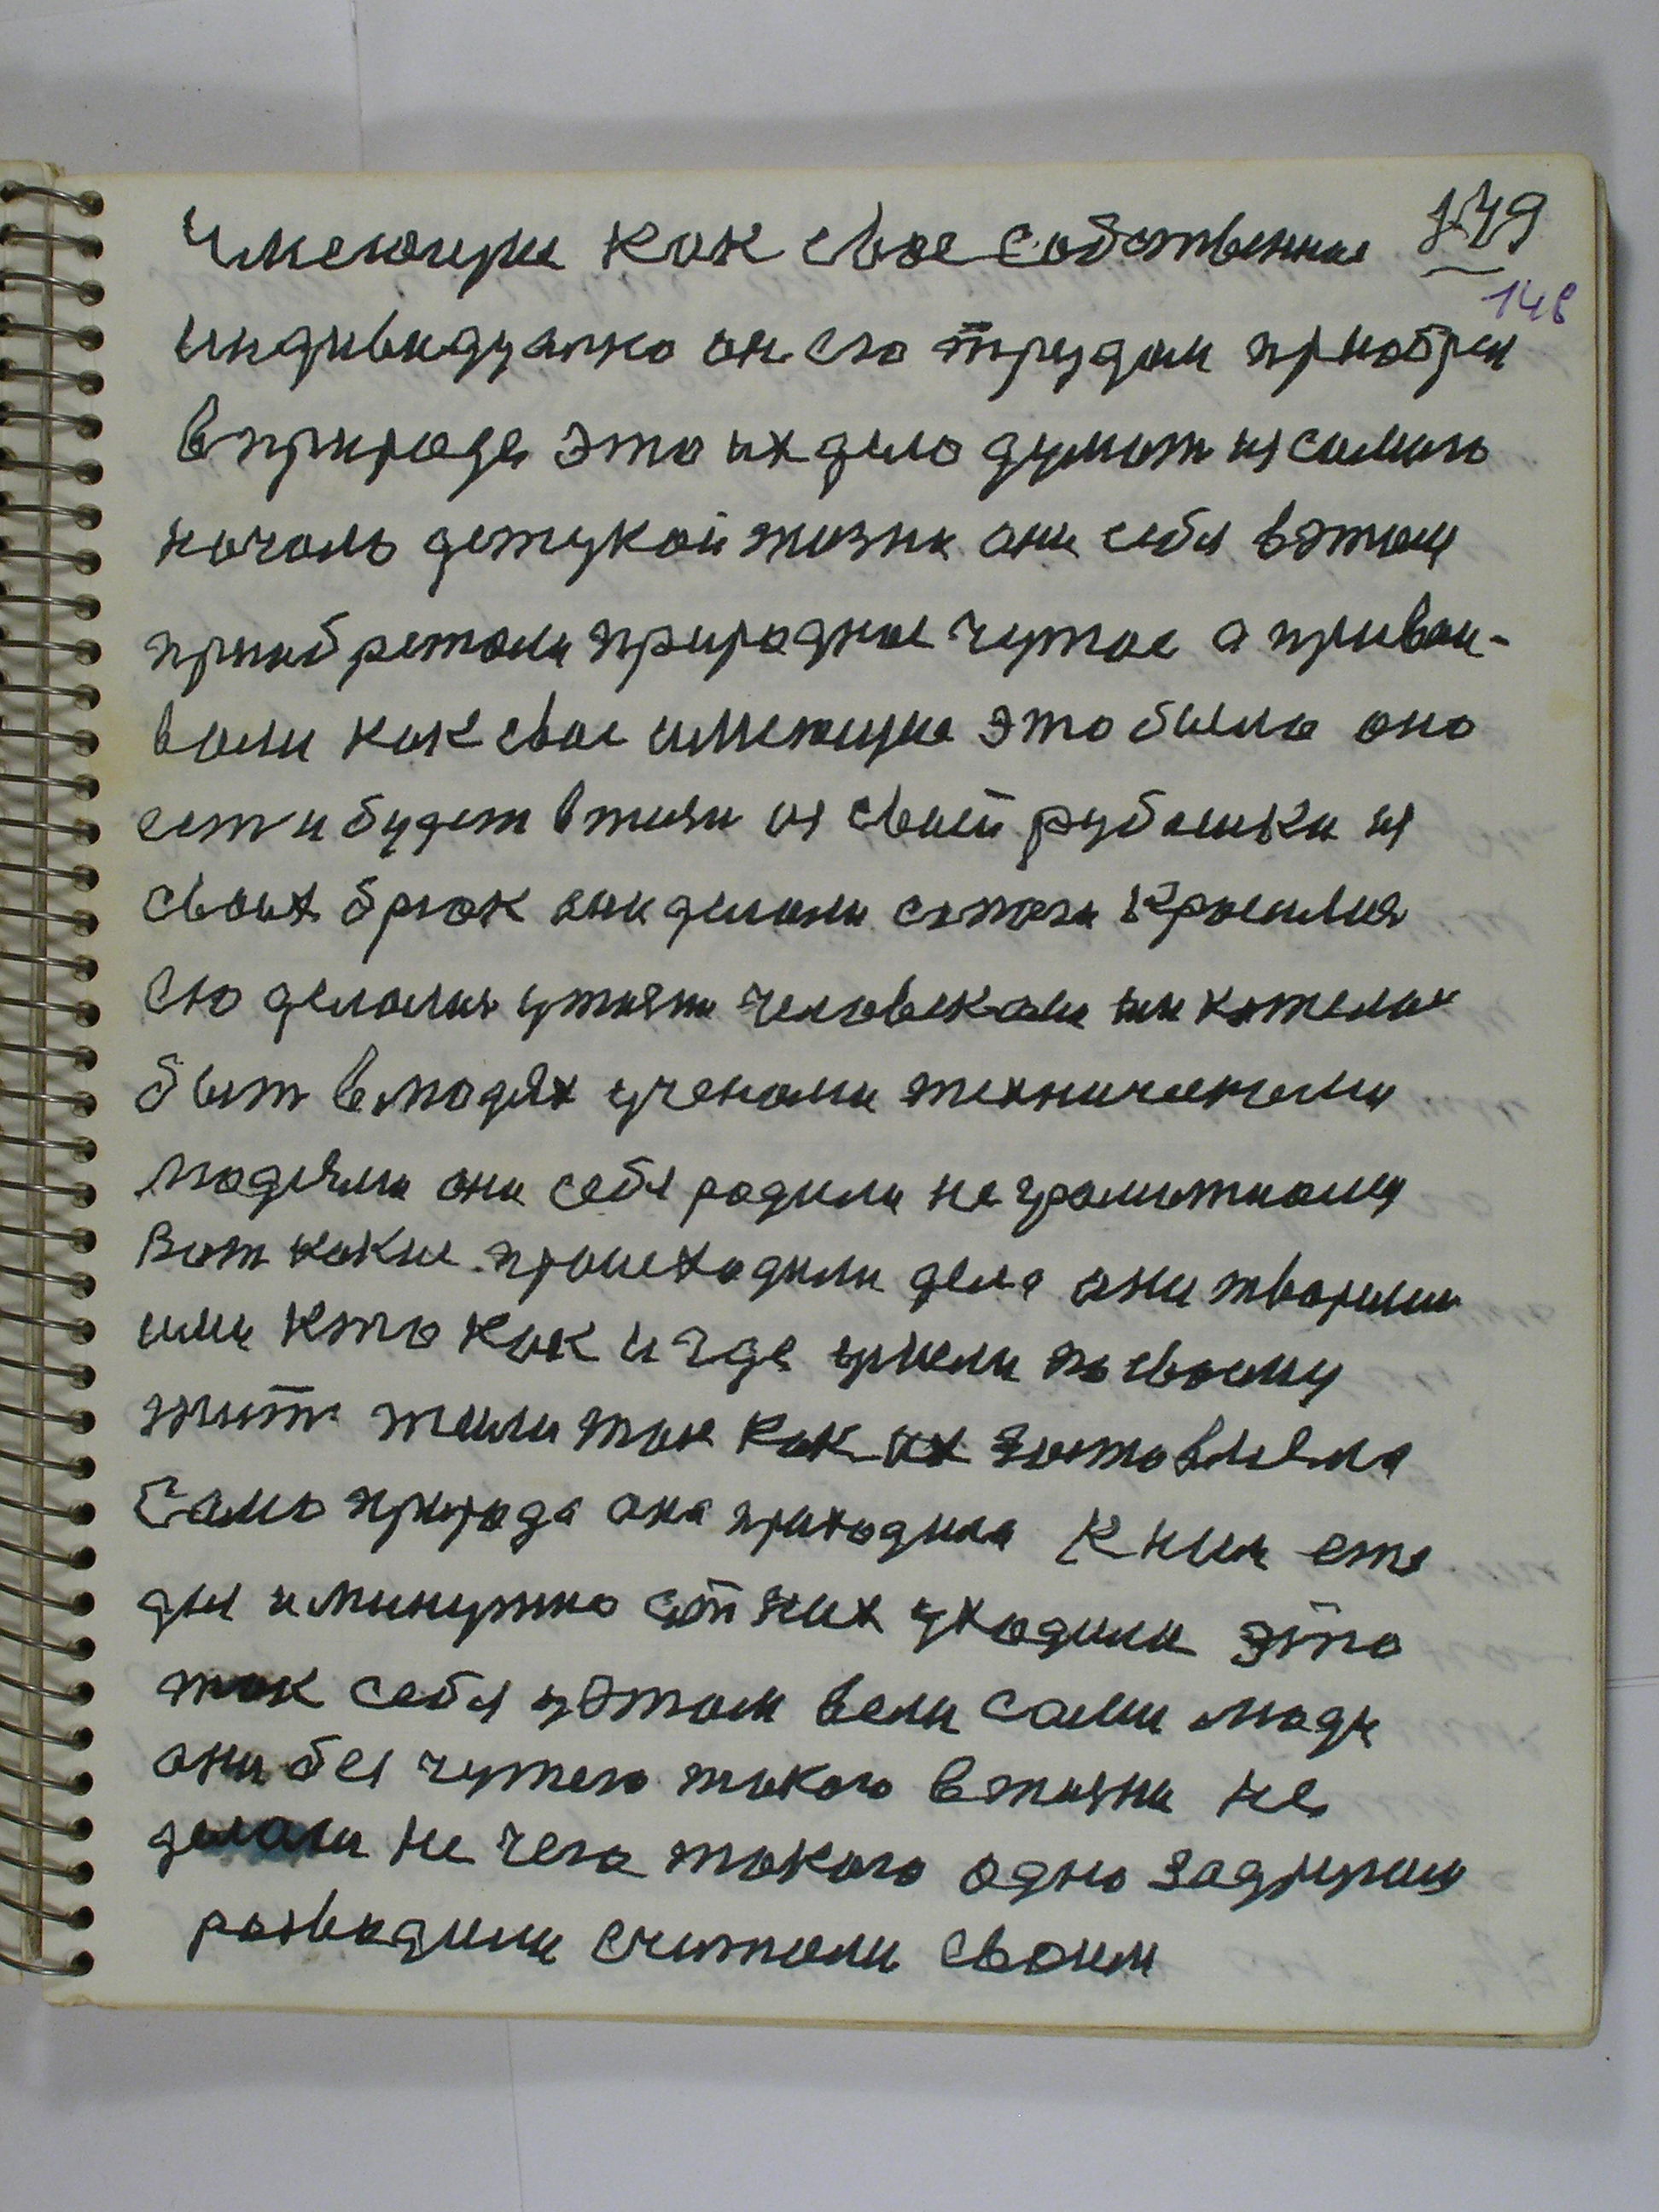 149
148
Имеющие как свое собственное
индивидуално он его трудом приобрел
в природе это их дело думат из самого
начало детцкой жизни они себя в этом
приобретали природное чужое а присваи-
вали как свое имеющие это было оно
ест и будет в жизни из своей рубашки из
своих брюк они делали
его делалия у жизни человеками они хотели
быт в людях учеными техническими
людями они себя родили неграмотными
Вот какие происходили дела они творили
или кто как и где умели по своему
жит жили так как их заставляла
само природа она приходила к ним еже
дня и минутно от них уходили это
так себя у этом вели сами люди
они без чужого такого в жизни не
делали не чего такого одно задругим
разводили считали своим